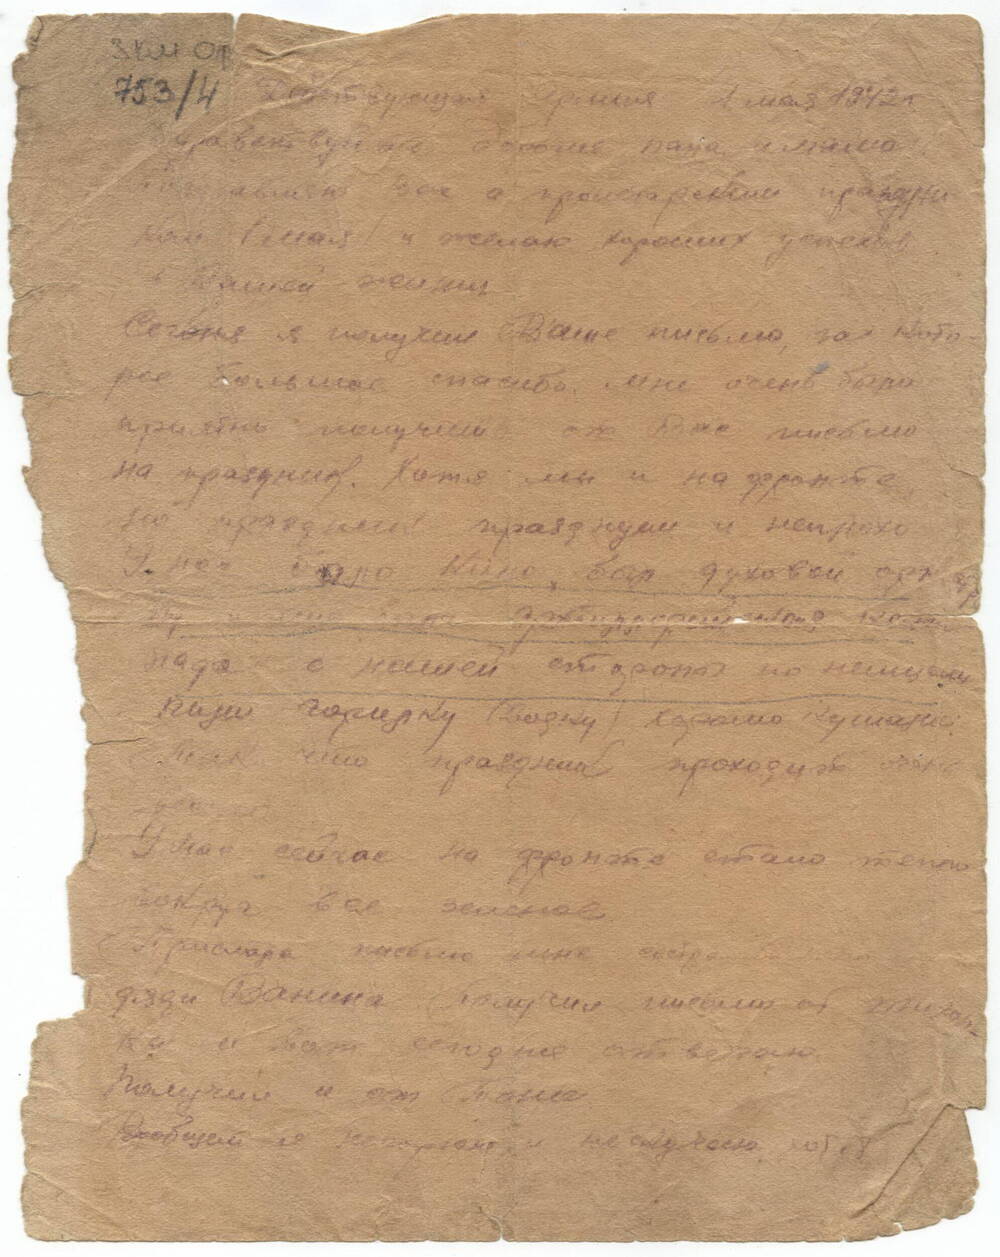 ЗКМ ОФ
753/4
Действующая Армия 1 мая 1942 г
Здравствуйте дорогие папа и мама!
Поздравляю Вас с пролетарским праздни-
ком 1 мая и желаю хороших успехов
в Вашей жизни
Сегодня я получил Ваше письмо, за кото-
рое большое спасибо. Мне очень было
приятно получить от Вас письмо
на праздник. Хотя мы и на фронте,
но праздники празднуем и неплохо
У нас было кино, был духовой орк
была артиллерийская кано
нада с нашей стороны по немцам
пили горилку (водку) хорошо кушали
Так что праздник проходит очень
У нас сейчас на фронте стало тепло
Вокруг все зеленое
Прислала письмо мне сестра
дяди Ванина Получил письмо от
ки и вот сегодня отвечаю
Получил и от Тани
Вообщем я и не скучаю